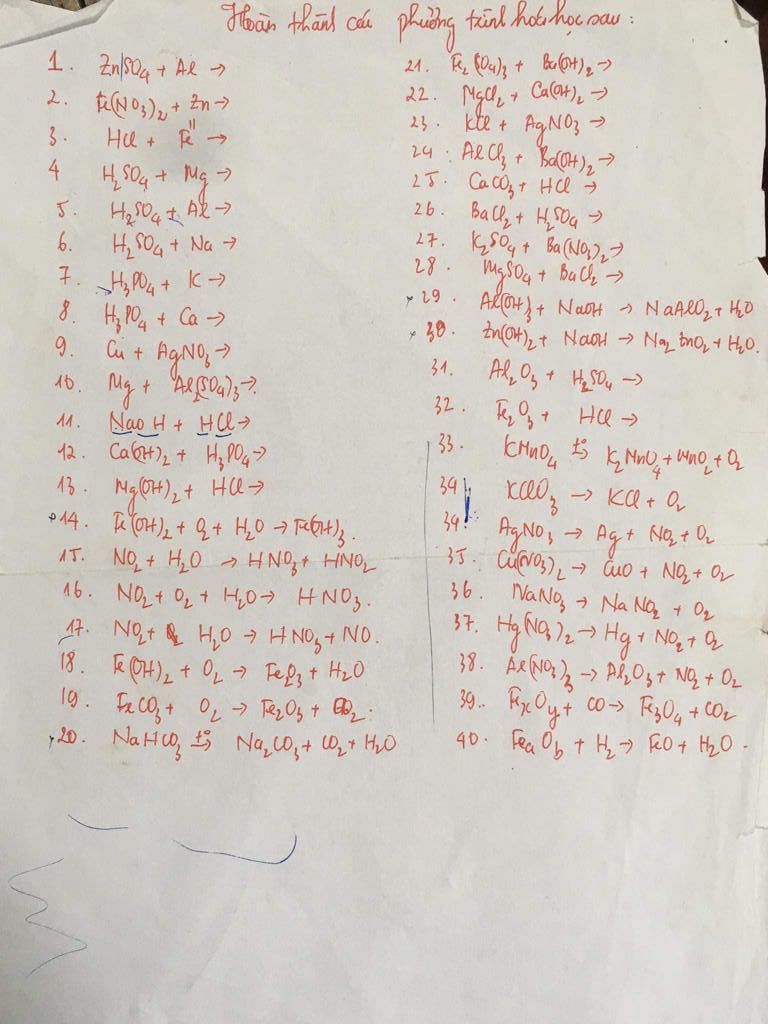 Hoàn thành các phương trình hoá học sau:
1. ZnSO4 + Al →
2. Fe(NO3)2 + Zn →
3. HCl + Fe^II →
4 H2SO4 + Mg →
5. H2SO4 + Al →
6. H2SO4 + Na →
7. H3PO4 + K →
8. H3PO4 + Ca →
9. Cu + AgNO3 →
10. Mg + Al2(SO4)3 →
11. NaOH + HCl →
12. Ca(OH)2 + H3PO4 →
13. Mg(OH)2 + HCl →
14. Fe(OH)2 + O2 + H2O → Fe(OH)3.
15. NO2 + H2O → HNO3 + HNO2
16. NO2 + O2 + H2O → HNO3.
17. NO2 + H2O → HNO3 + NO.
18. Fe(OH)2 + O2 → Fe2O3 + H2O
19. FeCO3 + O2 → Fe2O3 + CO2.
20. NaHCO3 t°→ Na2CO3 + CO2 + H2O
21. Fe2(SO4)3 + Ba(OH)2 →
22. MgCl2 + Ca(OH)2 →
23. KCl + AgNO3 →
24. AlCl3 + Ba(OH)2 →
25. CaCO3 + HCl →
26. BaCl2 + H2SO4 →
27. K2SO4 + Ba(NO3)2 →
28. MgSO4 + BaCl2 →
29. Al(OH)3 + NaOH → NaAlO2 + H2O
30. Zn(OH)2 + NaOH → Na2ZnO2 + H2O.
31. Al2O3 + H2SO4 →
32. Fe2O3 + HCl →
33. KMnO4 t°→ K2MnO4 + MnO2 + O2
34 KClO3 → KCl + O2
34. AgNO3 → Ag + NO2 + O2
35. Cu(NO3)2 → CuO + NO2 + O2
36. NaNO3 → NaNO2 + O2
37. Hg(NO3)2 → Hg + NO2 + O2
38. Al(NO3)3 → Al2O3 + NO2 + O2
39. FexOy + CO → Fe3O4 + CO2
40. FeaOb + H2 → FeO + H2O.